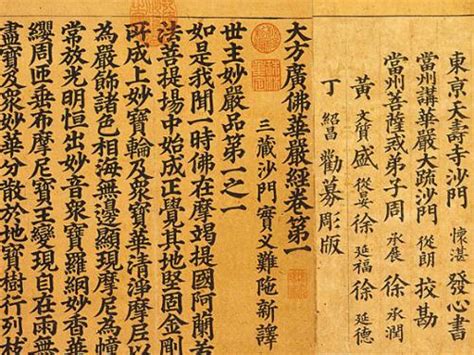 東京天壽寺沙門 懷湛 發心書
當州講華嚴大疏沙門 從朗 挍勘
當州菩薩戒弟子周 承展 徐 承潤
黃 文質 盛 從妥 徐 延福 徐 延德
丁 紹昌 勸募彫版
大方廣佛華嚴經卷第一
三藏沙門實叉難陁新譯
世主妙嚴品第一之一
如是我聞一時佛在摩竭提國阿蘭若
法菩提場中始成正覺其地堅固金剛
所成上妙寶輪及眾寶華清淨摩尼以
為嚴飾諸色相海無邊顯現摩尼為幢
常放光明恒出妙音眾寶羅網妙香華
纓周匝垂布摩尼寶王變現自在雨無
盡寶及眾妙華分散於地寶樹行列枝